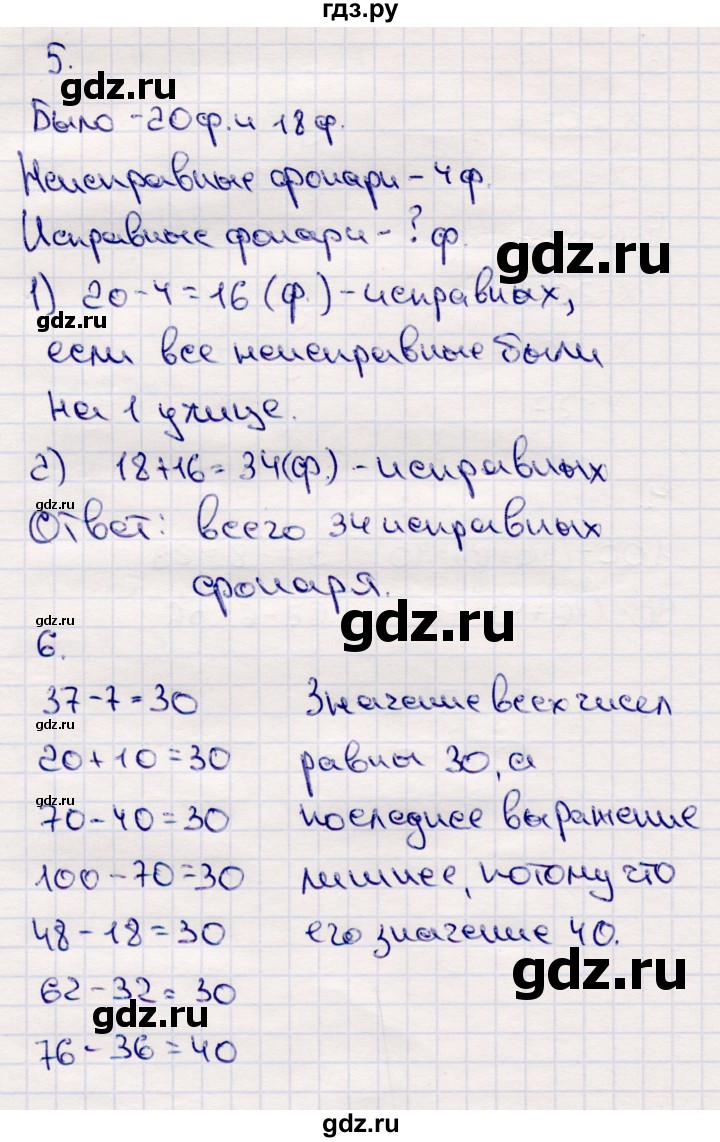 гдз.ру
5.
gdz.ru
Было - 20 ф. и 18 ф.
Неисправные фонари - 4 ф.
Исправные фонари - ? ф.
gdz.ru
1) 20 - 4 = 16 (ф.) - исправных,
gdz.ru
если все неисправные были
на 1 улице.
2) 18 + 16 = 34 (ф.) - исправных
gdz.ru
Ответ: всего 34 исправных
фонаря.
gdz.ru
gdz.ru
6.
37 - 7 = 30 Значение всех чисел
gdz.ru
20 + 10 = 30 равны 30, а
gdz.ru
70 - 40 = 30 последнее выражение
100 - 70 = 30 лишнее, потому что
48 - 18 = 30 его значение 40.
gdz.ru
62 - 32 = 30
gdz.ru
76 - 36 = 40
gdz.ru